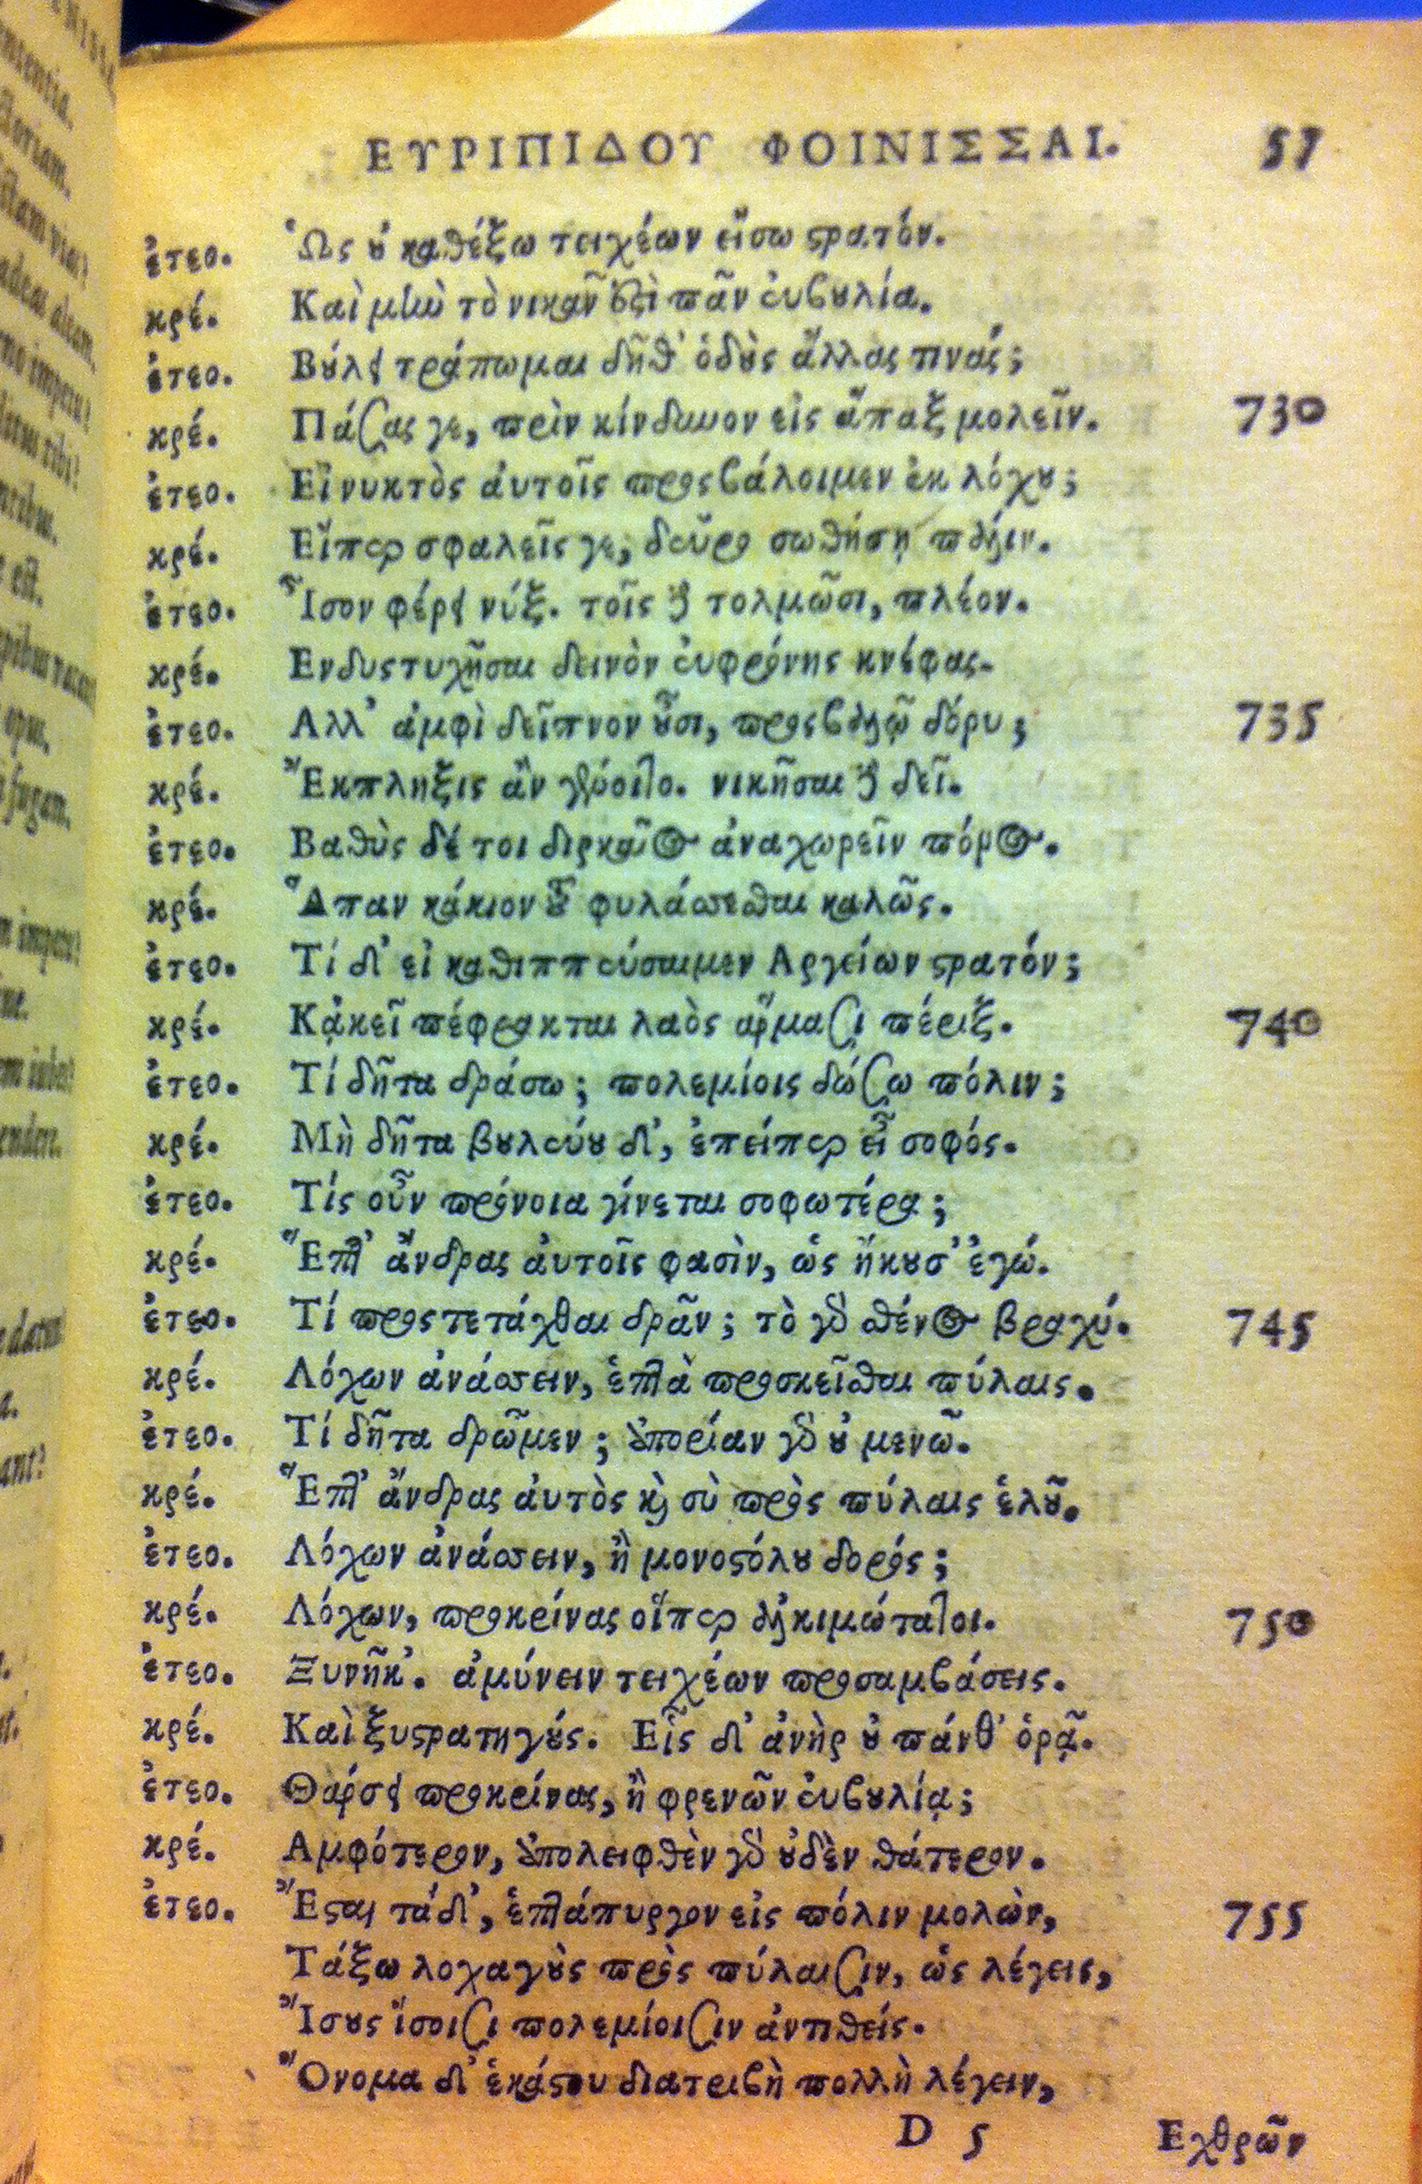 ΕΥΡΙΠΙΔΟΥ ΦΟΙΝΙΣΣΑΙ. 57
ἐτεο. Ὡς ȣ̓ καθέξω τειχέων εἴσω ϛρατόν.
κρέ. Καὶ μὴν τὸ νικᾶν ἐςὶ πᾶν ἐυβȣλία.
ἐτεο. Βȣ́λει τράπωμαι δῆθ' ὁδȣ̀ς ἄλλας τινάς;
κρέ. Πάσας γε, πρὶν κίνδυνον εἰς ἅπαξ μολεῖν. 730
ἐτεο. Εἰ νυκτὸς ἀυτοῖς προςβάλοιμεν ἐκ λόχȣ;
κρέ. Εἴπερ σφαλεῖς γε, δεῦρο σωθήσῃ πάλιν.
ἐτεο. Ἶσον φέρει νύξ. τοῖς δὲ τολμῶσι, πλέον.
κρέ. Ενδυςτυχῆσαι δεινὸν ἐυφρόνης κνέφας.
ἐτεο. Αλλ' ἀμφὶ δεῖπνον ȣ̓͂σι, προςβαλῶ δόρυ; 735
κρέ. Ἔκπληξις ἂν γένοιτο. νικῆσαι δὲ δεῖ.
ἐτεο. Βαθὺς δέ τοι διρκαῖος ἀναχωρεῖν πόρος.
κρέ. Ἅπαν κάκιον τȣ͂ φυλάσσεσθαι καλῶς.
ἐτεο. Τί δ' εἰ καθιππεύσαιμεν Αργείων ϛρατόν;
κρέ. Κᾀκεῖ πέφρακται λαὸς ἅρμασι πέριξ. 740
ἐτεο. Τί δῆτα δράσω; πολεμίοις δώσω πόλιν;
κρέ. Μὴ δῆτα βȣλεύȣ δ', ἐπείπερ εἶ σοφός.
ἐτεο. Τίς οὖν πρόνοια γίνεται σοφωτέρα;
κρέ. Ἕπτ' ἄνδρας ἀυτοῖς φασὶν, ὡς ἤκȣσ' ἐγώ.
ἐτεο. Τί προςτετάχθαι δρᾶν; τὸ γὰρ σθένος βραχύ. 745
κρέ. Λόχων ἀνάσσειν, ἑπτὰ προσκεῖσθαι πύλαις.
ἐτεο. Τί δῆτα δρῶμεν; ἀπορίαν γὰρ ȣ̓ μενῶ.
κρέ. Ἕπτ' ἄνδρας ἀυτὸς καὶ σὺ πρὸς πύλαις ἑλȣ͂.
ἐτεο. Λόχων ἀνάσσειν, ἢ μονοϛόλȣ δορός;
κρέ. Λόχων, προκρίνας οἵπερ ἀλκιμώτατοι. 750
ἐτεο. Ξυνῆκ'. ἀμύνειν τειχέων προσαμβάσεις.
κρέ. Καὶ ξυϛρατηγȣ́ς. Εἷς δ' ἀνὴρ ȣ̓ πάνθ' ὁρᾷ.
ἐτεο. Θάρσει προκρίνας, ἢ φρενῶν ἐυβȣλίᾳ;
κρέ. Αμφότερον, ἀπολειφθὲν γὰρ ȣ̓δὲν θάτερον.
ἐτεο. Ἔϛαι τάδ', ἑπτάπυργον εἰς πόλιν μολὼν, 755
Τάξω λοχαγȣ̀ς πρὸς πύλαισιν, ὡς λέγεις,
Ἴσȣς ἴσοισι πολεμίοισιν ἀντιθείς.
Ὄνομα δ' ἑκάϛου διατριβὴ πολλὴ λέγειν,
D 5 Εχθρῶν